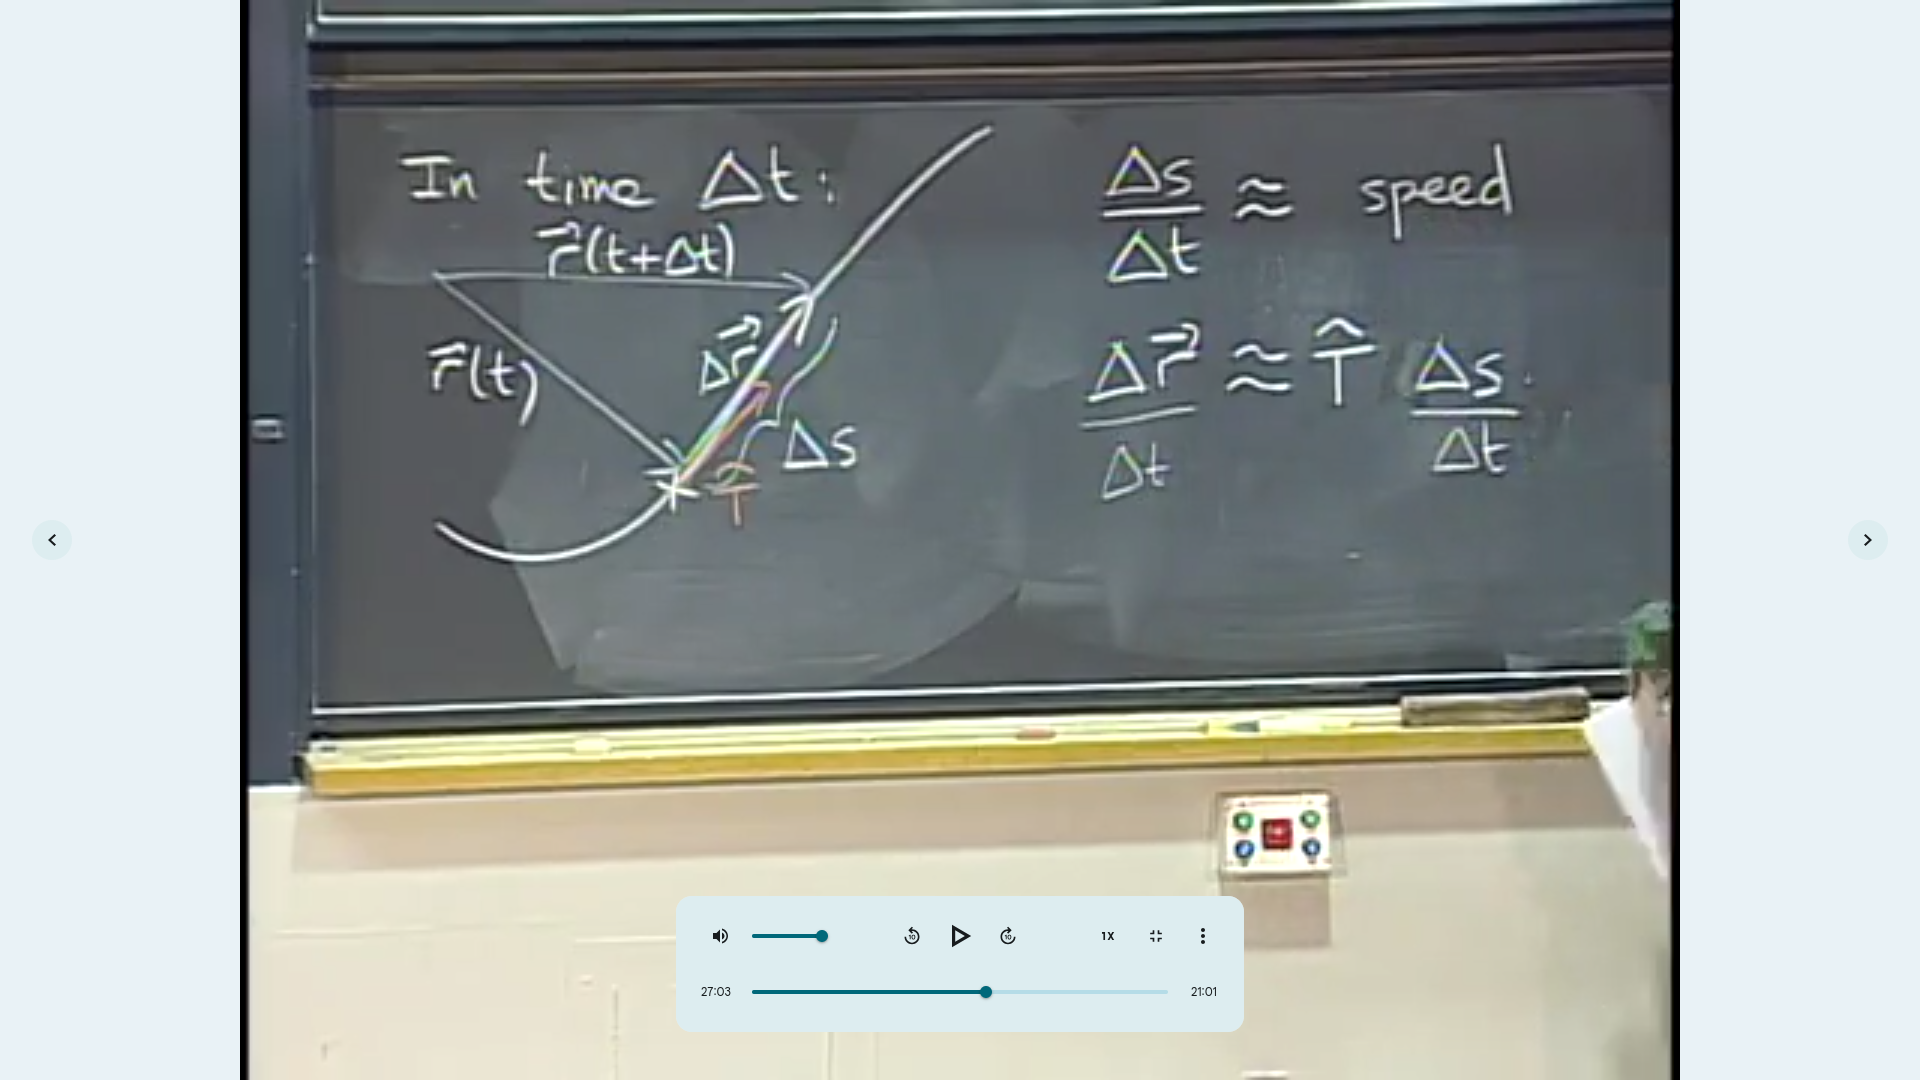 In time Δt:
r⃗(t+Δt)
r⃗(t)
Δr⃗
Δs
T̂
Δs/Δt ≈ speed
Δr⃗/Δt ≈ T̂ Δs/Δt.
10
10
1X
27:03
21:01